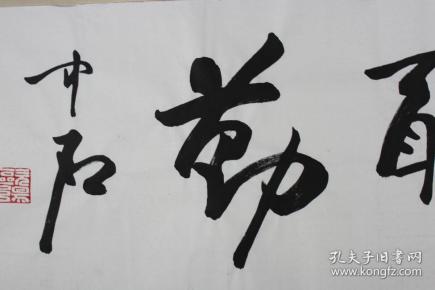 勤
中石
孔夫子旧书网
www.kongfz.com